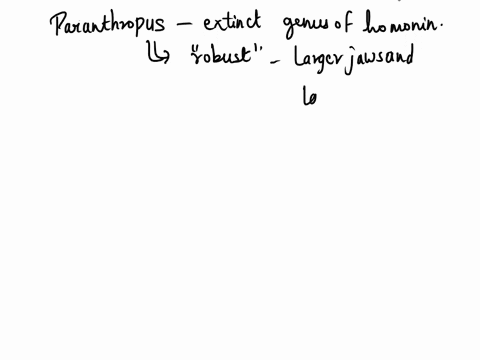 Paranthropus - extinct genus of homonin.
↳ "robust" - Larger jaws and
lo